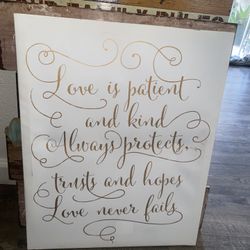 Love is patient
and kind
Always protects,
trusts and hopes
Love never fails